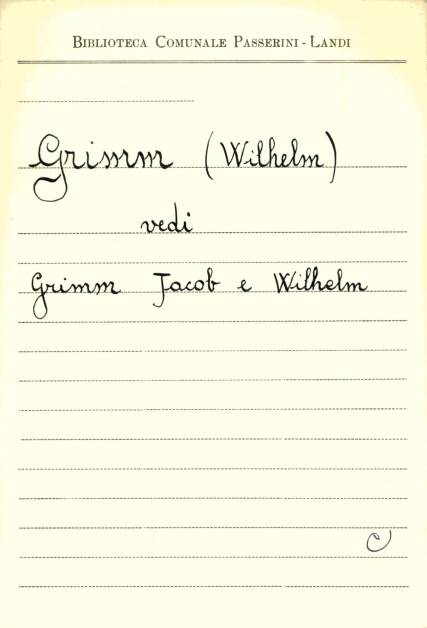 BIBLIOTECA COMUNALE PASSERINI - LANDI
Grimm (Wilhelm)
vedi
Grimm Jacob e Wilhelm